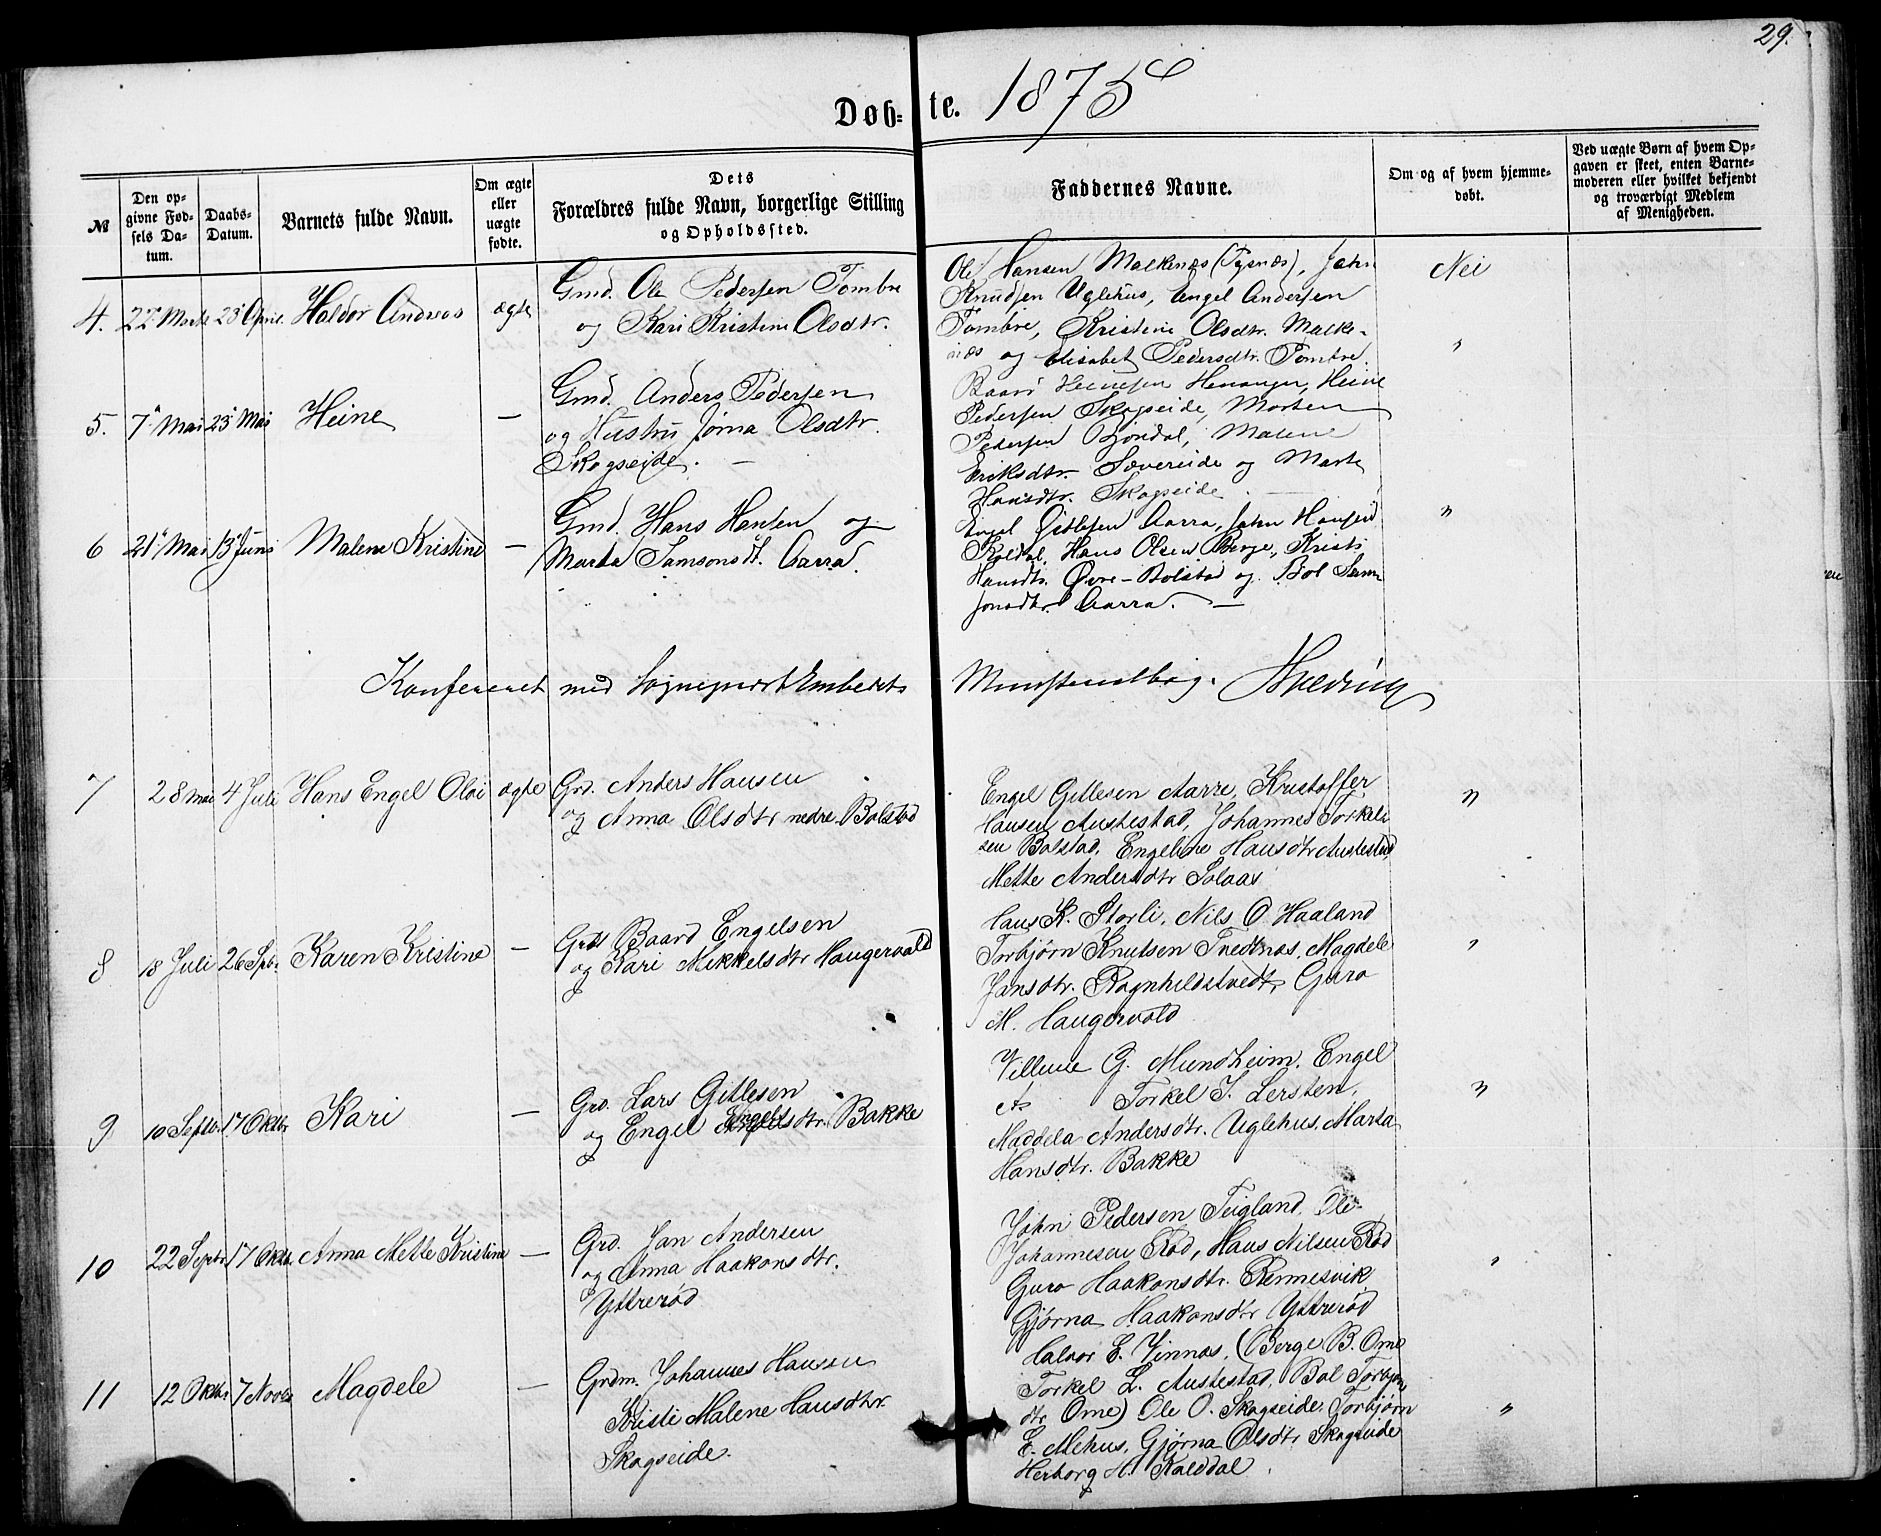 29.
Døb= te. 1875
№
Den op-
givne Fød-
sels Da-
tum.
Daabs-
Datum.
Barnets fulde Navn.
Om ægte
eller
uægte
fødte.
Dets
Forældres fulde Navn, borgerlige Stilling
og Opholdssted.
Faddernes Navne.
Om og af hvem hjemme-
døbt.
Ved uægte Børn af hvem Op-
gaven er skeet, enten Barne-
moderen eller hvilket bekjendt
og troværdigt Medlem
af Menigheden.
4. 22 Marts 23 April. Haldor Andreas ægte
Gmd. Ole Pedersen Tombre
og Kari Kristine Olsdtr.
Ole Hansen Malkenæs (Tysnæs), John
Knudsen Uglehus, Engel Andersen
Tombre, Kristine Olsdtr. Malke-
næs og Elisabet Pedersdtr. Tombre.
Nei
"
5. 7 Mai 23 Mai Heine —
Gmd. Anders Pedersen
og Hustru Jørna Olsdtr.
Skogseide. —
Baard Heinesen Henanger, Heine
Pedersen Skogseide, Morten
Pedersen Gjøndal, Malene
Eriksdtr. Sævereide og Marte
Hansdtr. Skogseide. —
6 21 Mai 13 Juni Malene Kristine —
Gmd. Hans Hansen og
Marta Samsonsdt. Aarra.
Engel Gitlesen Aarra, John Hansen
Koldal, Hans Olsen Berge, Kristi
Hansdtr. Øvre-Bolstad og Bol Sam-
sonsdtr. Aarra. —
"
Konfereret med Sogneprest Embedets Ministerialbog.
7 28 Mai 4 Juli Hans Engel Olai ægte
Grd. Anders Hansen
og Anna Olsdtr nedre Bolstad
Engel Gitlesen Aarre, Kristoffer
Hansen Austestad, Johannes Torkel-
sen Bolstad, Engeline Hansdtr Austestad
Mette Andersdtr Solaas
"
8 18 Juli 26 Spbr. Karen Kristine —
Grd Baard Engelsen
og Kari Mikkelsdtr Haugervold
Hans K. Storli, Nils O. Haaland
Torbjørn Knutsen Tvedtnæs, Magdele
Jansdtr. Ragnhildstvedt, Guro
M. Haugervold
"
9 10 Septbr. 17 Oktbr. Kari —
Grd. Lars Gitlesen
og Engel Engelsdtr. Bakke
Villume G. Mundheim, Engel
A Torkel I. Lersten,
Maddela Andersdtr. Uglehus, Marta
Hansdtr. Bakke
"
10 22 Septbr 17 Oktbr. Anna Mette Kristine —
Grd. Jan Andersen
og Anna Haakonsdtr.
Yttrerød
John Pedersen Teigland, Ole
Johannesen Rød, Hans Nilsen Rød
Guro Haakonsdtr. Rennesvik
Gjørna Haakonsdtr Yttrerød
"
11 12 Oktbr 7 Novbr Magdele —
Grdm. Johannes Hansen
Kristi Malene Hansdtr.
Skogseide.
Halvor E. Vinnæs, (Berge B. Ome
Torkel L. Austestad, Bol Torbjørn
dtr Ome) Ole O. Skogseide, Torbjørn
E. Mehus, Gjørna Olsdtr Skogseide
Herborg H. Kolddal.
"